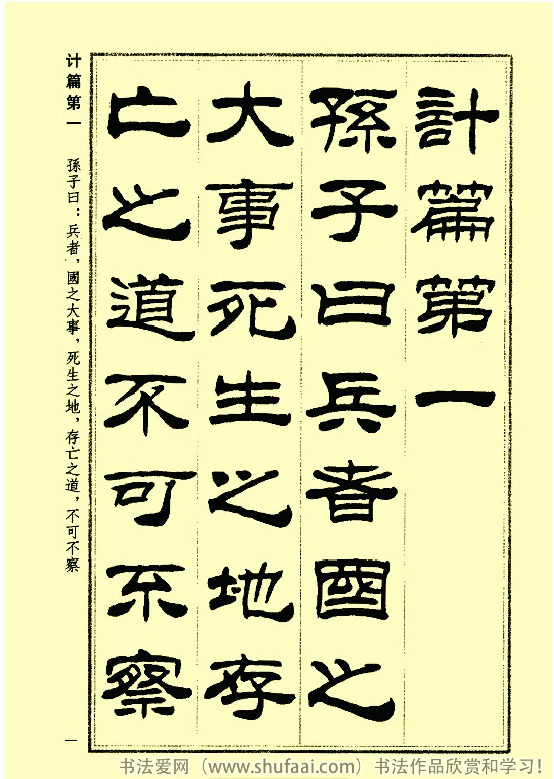 計篇第一
孫子曰兵者國之
大事死生之地存
亡之道不可不察
计篇第一
孫子曰：兵者，國之大事，死生之地，存亡之道，不可不察
一
书法爱网（www.shufaai.com）书法作品欣赏和学习！